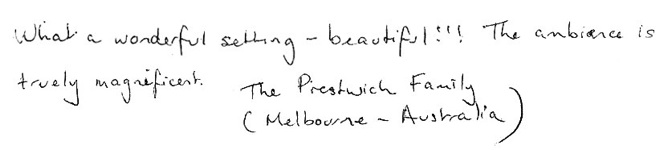 What a wonderful setting - beautiful!!! The ambience is
truely magnificent. The Prestwich Family
(Melbourne - Australia)